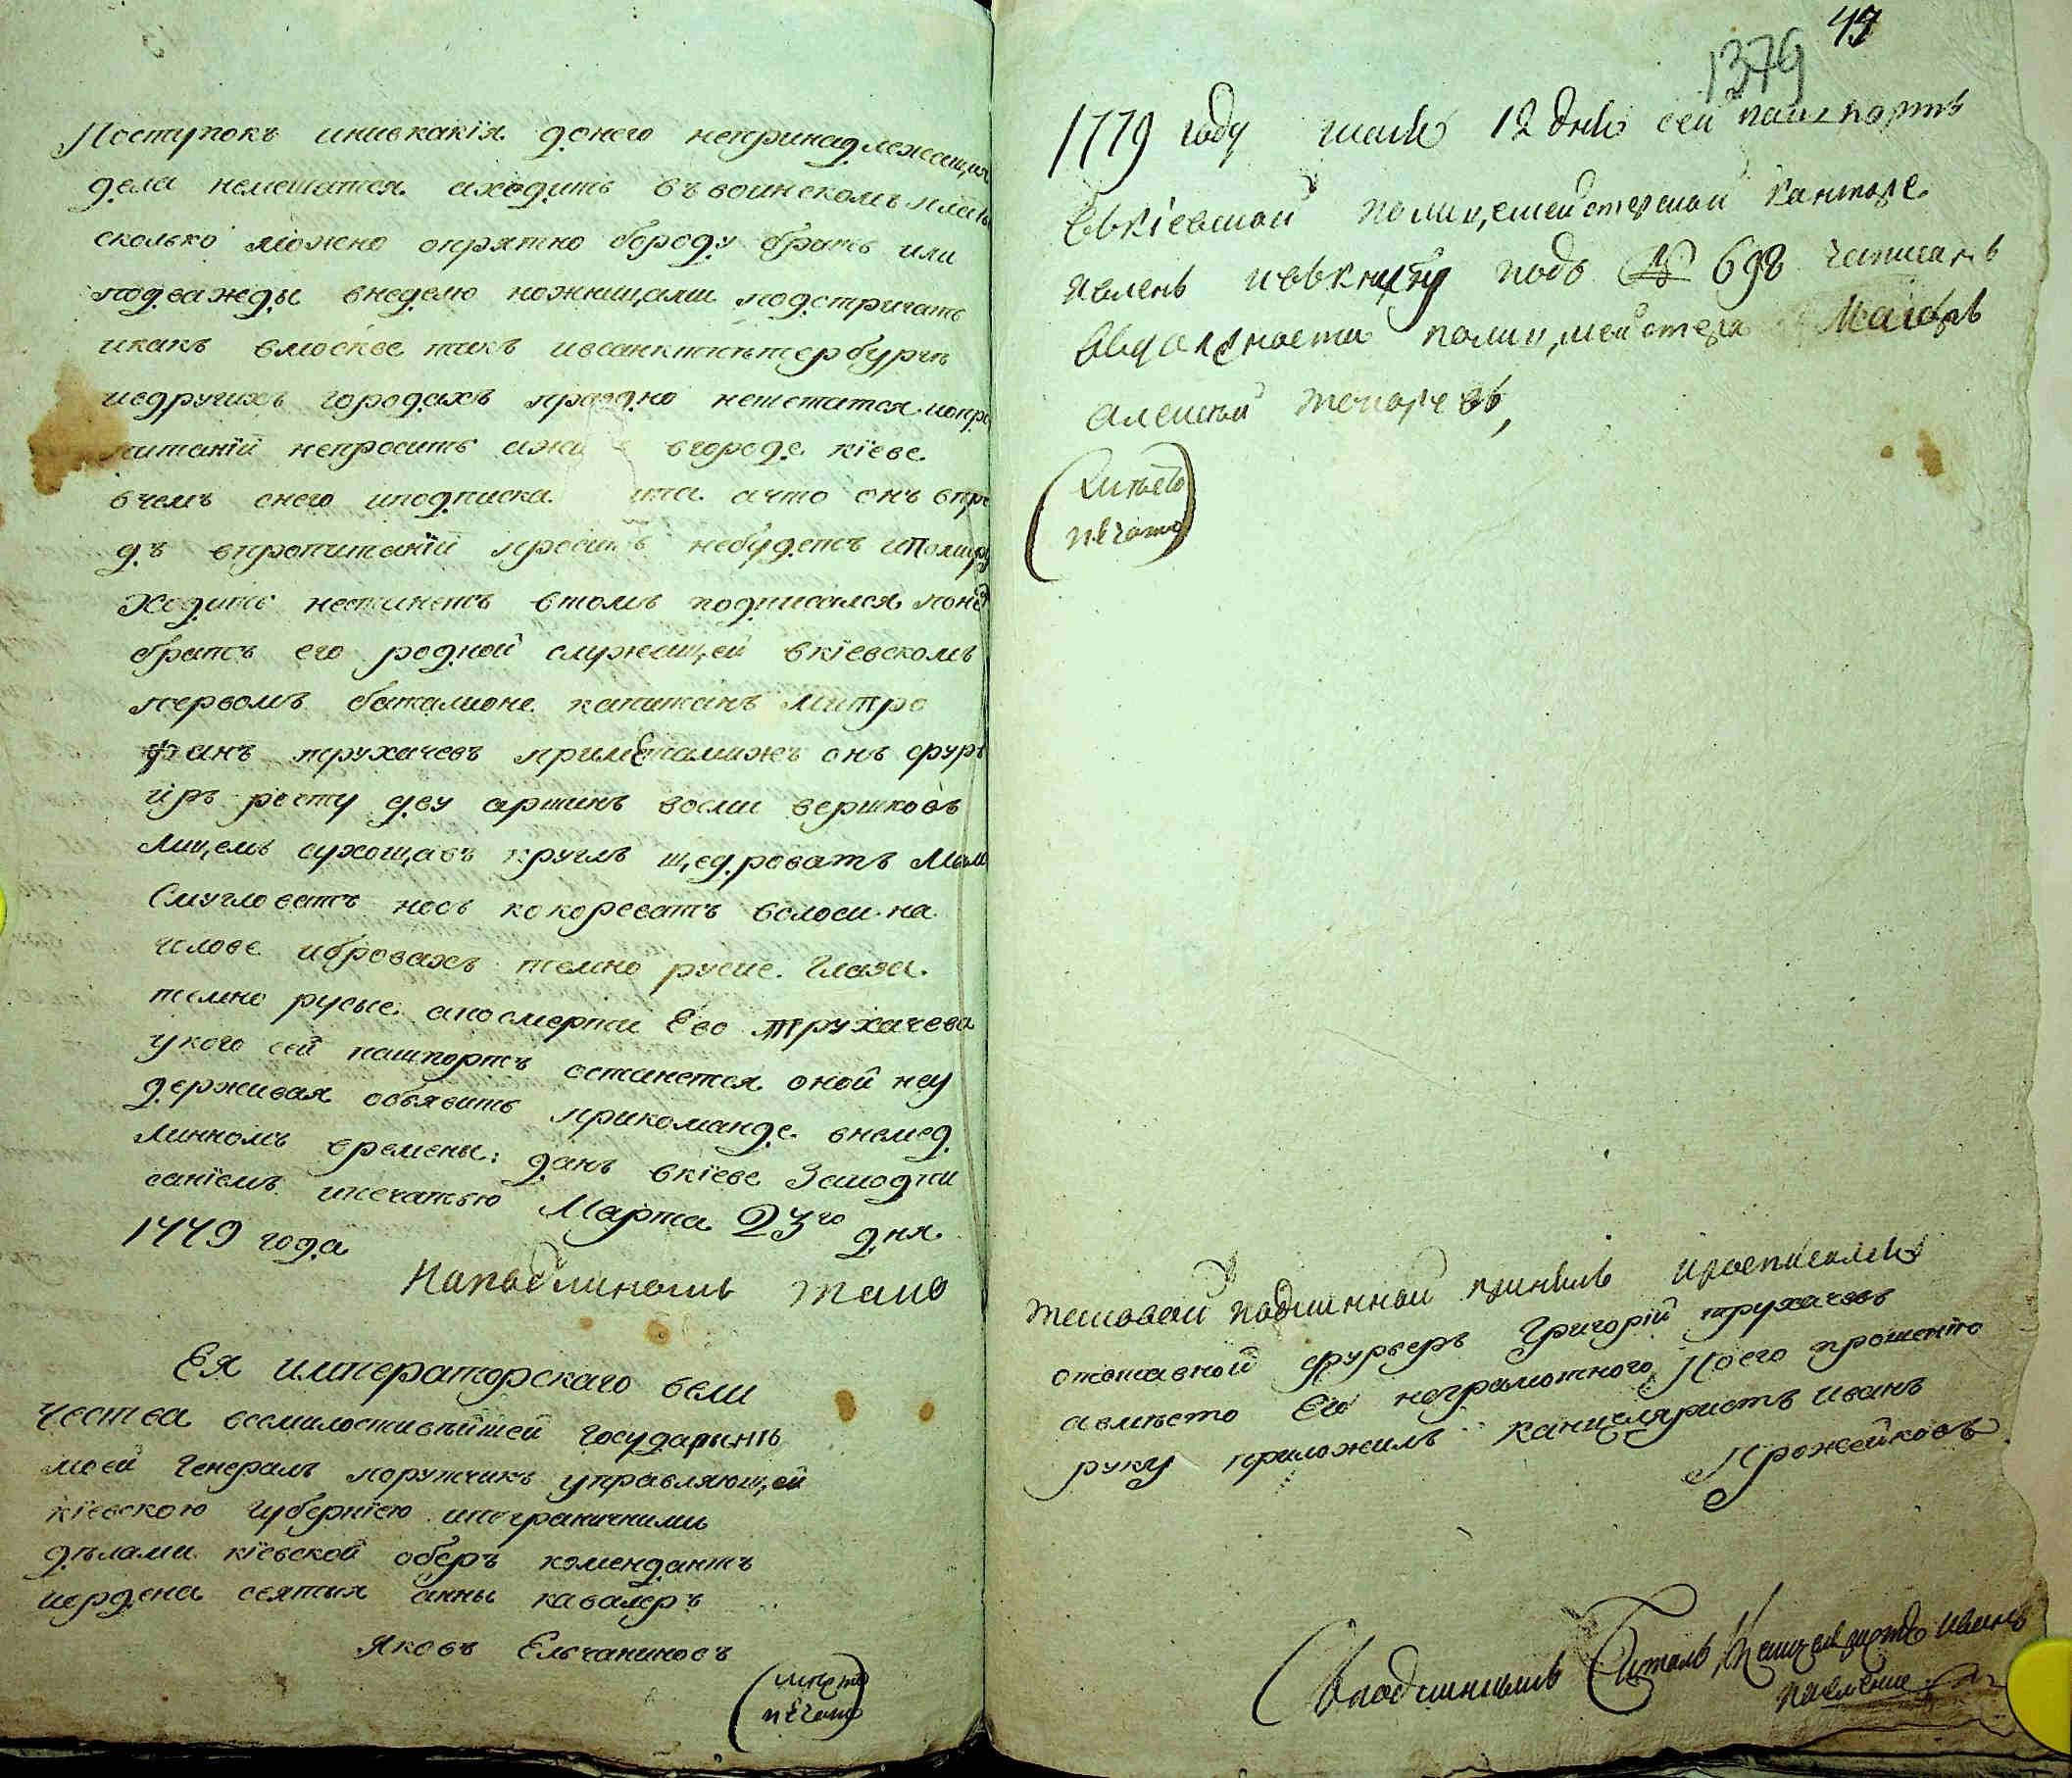 Поступокъ инивкакія донего непринадлежащия
дела немешатся аходить въ воинскомъ плать
сколько можно опрятно бороду брить или
подважды внеделю ножницами подстригать
икакъ вмоскве такъ ивсанктпетербурге
ивдругихъ городахъ праздно нешетатся ионро
питаній непросить ажи вгороде кіеве
вчемъ снего иподписка ата ачто онъ впре
дъ опропитаній просить небудетъ иполиру
Ходить нестанетъ втомъ подписался понем
братъ его родной служащей вкіевскомъ
первомъ баталионе капитанъ Митро
фанъ трухачевъ приметамижъ онъ фурь
иръ росту двухъ аршинъ восми вершковъ
Лицемъ сухощавъ круглъ щедроватъ Мало
Смугловатъ носъ кокореватъ волоси на
голове ибровахъ темно русие глаза
темно русые апосмерти Ево трухачева
укого сей пашпортъ останется оной неу
держивая объявить прикоманде внемед
линномъ времены: данъ вкіеве Замодпи
саніемъ ипечатью Марта 23го дня
1779 года
Наподлиномъ тако
Ея императорскаго вели
чества всемилостивѣйшей государынѣ
моей Генералъ порутчикъ управляющей
кіевскою губерніею ипограничними
дѣлами кіевской оберъ комендантъ
иордена святыя анны кавалеръ
Яковъ Ельчаниновъ
(мѣсто
печати)
47
1379
1779 году маия 12 дня сей пашпортъ
Вкіевской полицеймейстерской канторе
явленъ ивкнигу подъ № 698 записанъ
Вдолжности полицмейстера Маиоръ
алексей
(мѣсто
печати)
таковой подлинной принялъ иросписался
отставной фурьеръ Григорій трухачевъ
авместо Его неграмотного поего прошению
руку приложилъ канцеляристъ иванъ
Прожейковъ
Сподлиннымъ Читалъ Канцеляристъ иванъ